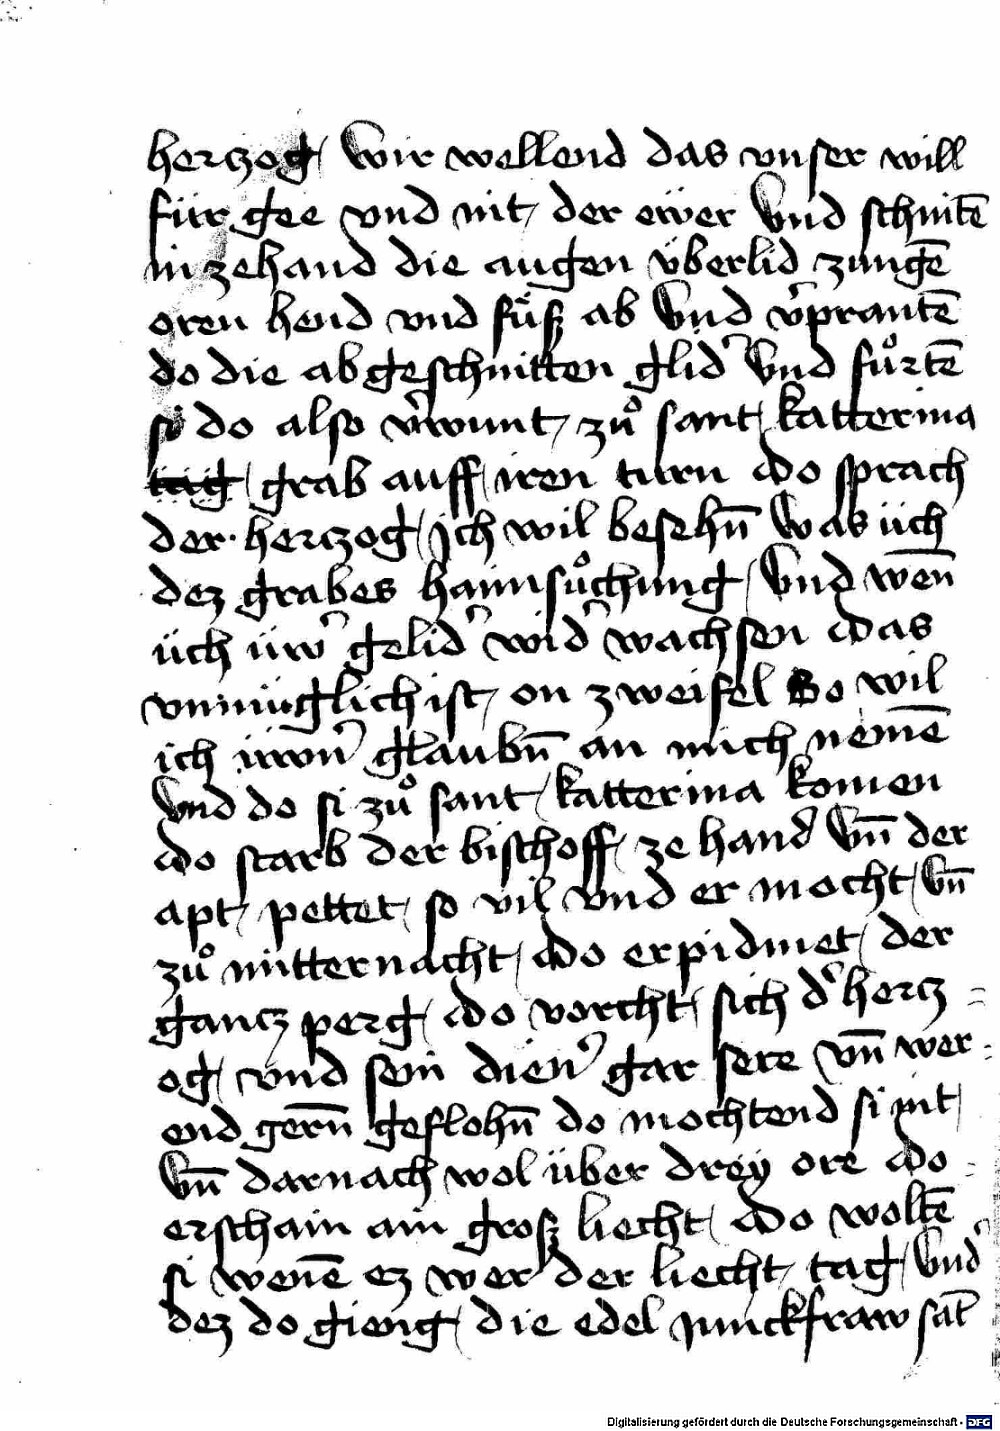 herczog / wir wellend das vnser will
für gee vnd nit / der ewer Vnd schnitē
in zehand die augen v̈berlid zungē
oren hend vnd fu̎ß ab Vnd v̓prantē
do die abgeschnitten glid̓ Vnd fůrtē
si do also v̓wunt / zů sant / katterina
tag / grab auff / iren turn Do sprach
der herczog / Ich wil besehn̄ Was üch
dez grabes haimsůchung / Vnd wen̄
üch üw̓ gelid̓ wid̓ wachsen Das
vnmüglich ist / on zweifel So wil
ich üwn̓ glaubn̄ an mich nemē
Vnd do si zů sant / katterina komen
Do starb der bischoff / ze hand Vn̄ der
apt / pettet / so vil vnd er mocht / Vn̄
zů mitternacht / Do erpidmet / der
gancz perg / Do vorcht / sich d̓ hercz =
og / vnd sein dien̓ gar sere Vn̄ wer =
end gern̄ geflohn̄ do mochtend si nit /
Vn̄ darnach wol über drey ore Do =
erschain ain groß liecht / Do woltē
si wenē ez wer der liecht / tag / Vnd
dez do gieng / die edel junckfraw sāt
Digitalisierung gefördert durch die Deutsche Forschungsgemeinschaft - DFG